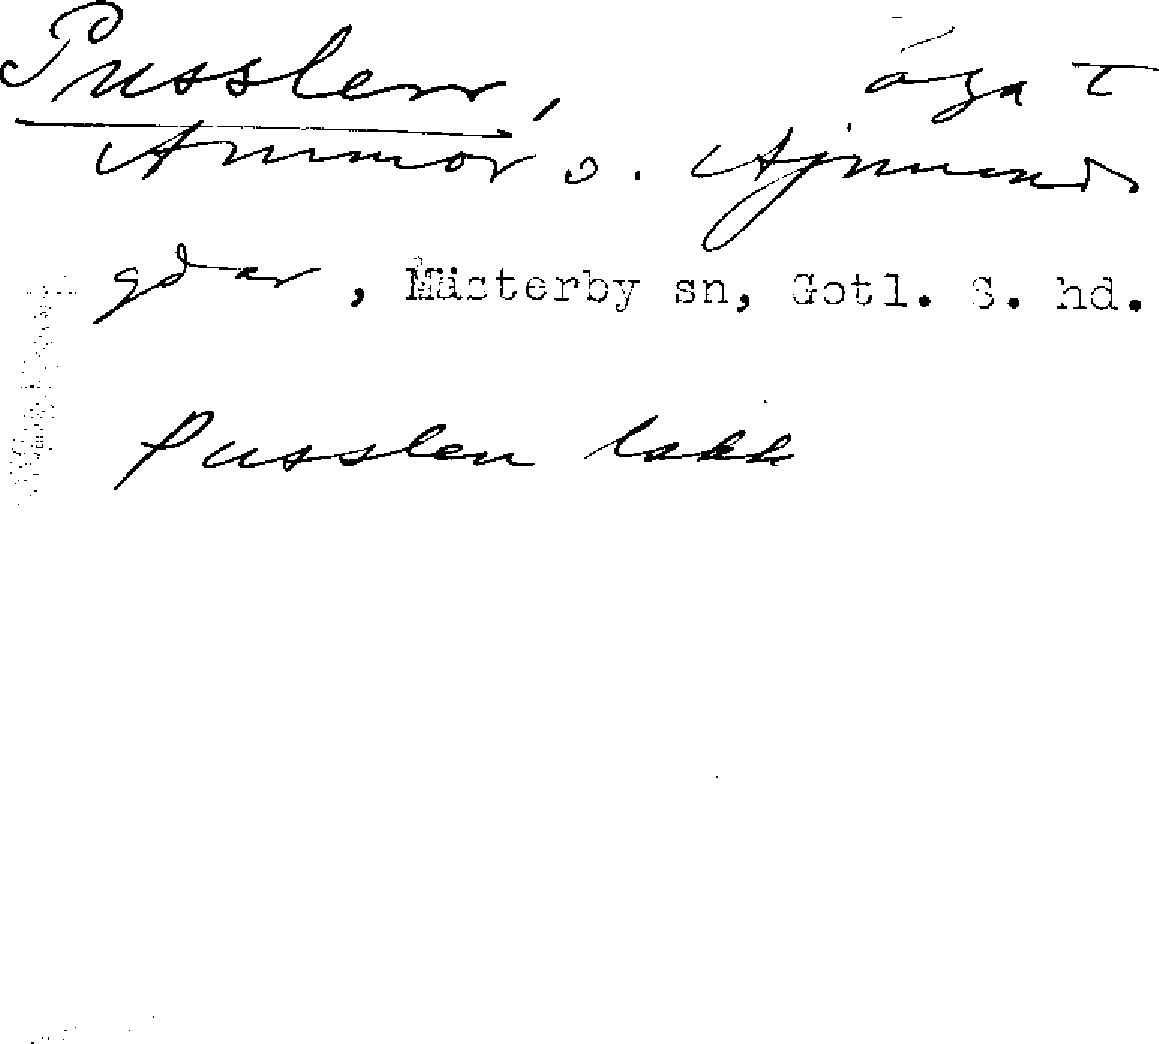 Pusslen, äga t
Ammor o. Ajmunds
gdar, Mästerby sn, Gotl. S. hd.
Pusslen lakk